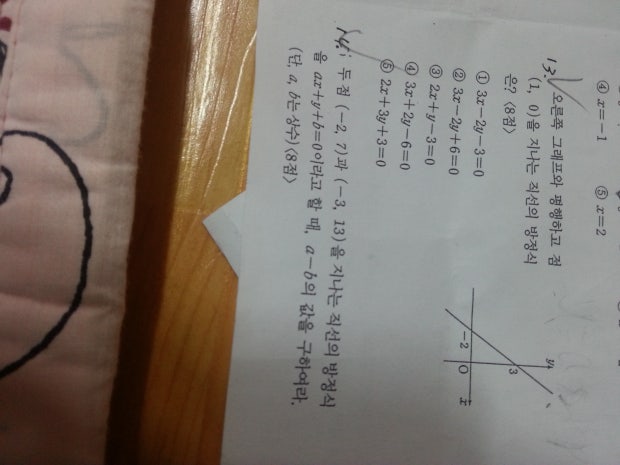 ④ x=-1 ⑤ x=2
13. 오른쪽 그래프와 평행하고 점
(1, 0)을 지나는 직선의 방정식
은? <8점>
① 3x-2y-3=0
② 3x-2y+6=0
③ 2x+y-3=0
④ 3x+2y-6=0
⑤ 2x+3y+3=0
y
3
-2
O
x
14. 두 점 (-2, 7)과 (-3, 13)을 지나는 직선의 방정식
을 ax+y+b=0이라고 할 때, a-b의 값을 구하여라.
(단, a, b는 상수) <8점>